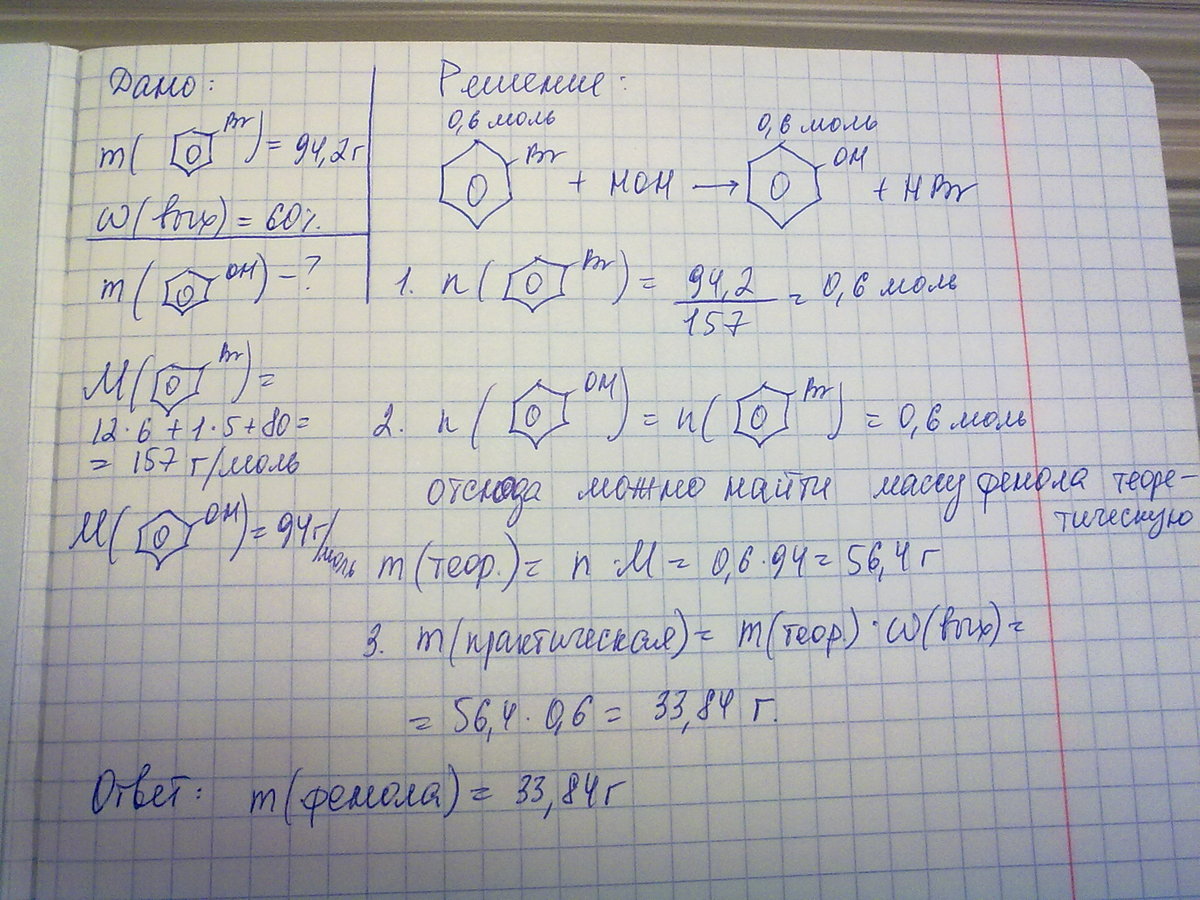 Дано:
m( Br) = 94,2г
ω(вых) = 60%
m( OH) - ?
M( Br) =
12·6 + 1·5 + 80 =
= 157 г/моль
M( OH) = 94г/моль
Решение:
0,6 моль 0,6 моль
Br + HOH → OH + HBr
1. n( Br) = 94,2 / 157 = 0,6 моль
2. n( OH) = n( Br) = 0,6 моль
отсюда можно найти массу фенола теоре-
тическую
m(теор.) = n · M = 0,6·94 = 56,4 г
3. m(практическая) = m(теор.) · ω(вых) =
= 56,4 · 0,6 = 33,84 г.
Ответ: m(фенола) = 33,84г